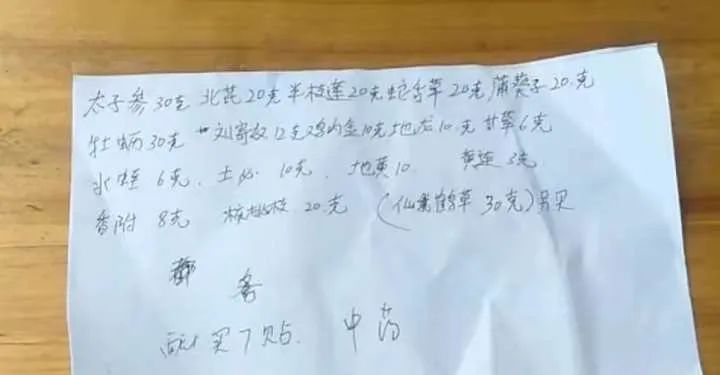 太子参30克 北芪20克 半枝莲20克 蛇舌草20克 蒲葵子20克
牡蛎30克 刘寄奴12克 鸡内金10克 地龙10克 甘草6克
水蛭6克、土必10克、地黄10 黄连3克
香附8克 核桃枝20克 (仙鹤草30克)另贝
客
买7贴. 中药